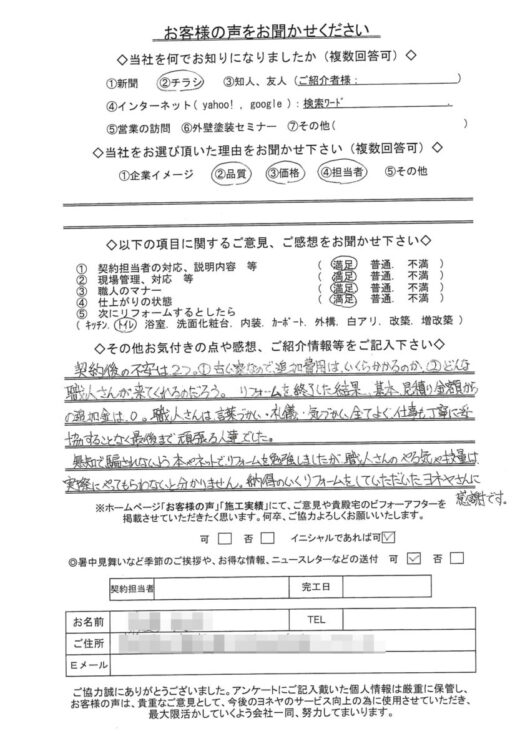 お客様の声をお聞かせください
◇当社を何でお知りになりましたか（複数回答可）◇
①新聞 ②チラシ ③知人、友人（ご紹介者様： ）
④インターネット（ yahoo! , google ）：検索ﾜｰﾄﾞ
⑤営業の訪問 ⑥外壁塗装セミナー ⑦その他（ ）
◇当社をお選び頂いた理由をお聞かせ下さい（複数回答可）◇
①企業イメージ ②品質 ③価格 ④担当者 ⑤その他
◇以下の項目に関するご意見、ご感想をお聞かせ下さい◇
① 契約担当者の対応、説明内容 等 （ 満足 普通. 不満 ）
② 現場管理、対応 等 （ 満足 普通. 不満 ）
③ 職人のマナー （ 満足 普通. 不満 ）
④ 仕上がりの状態 （ 満足 普通. 不満 ）
⑤ 次にリフォームするとしたら
（ ｷｯﾁﾝ. ﾄｲﾚ 浴室. 洗面化粧台. 内装. ｶｰﾎﾟｰﾄ. 外構. 白アリ. 改築. 増改築 ）
◇その他お気付きの点や感想、ご紹介情報等をご記入下さい◇
契約後の不安は2つ。①古い家なので追加費用はいくらかかるのか、②どんな
職人さんが来てくれるのだろう。リフォームを終了した結果、基本、見積り金額から
の追加金は、0。職人さんは言葉づかい・礼儀・気づかい全てよく仕事も丁寧に妥
協することなく最後まで頑張る人達でした。
無知で騙されないよう本やネットでリフォームを勉強しましたが職人さんのやる気や技量は
実際にやってもらわないと分かりません。納得のいくリフォームをしていただいたヨネヤさんに
感謝です。
※ホームページ「お客様の声」「施工実績」にて、ご意見や貴殿宅のビフォーアフターを
掲載させていただきたく思います。何卒、ご協力よろしくお願いいたします。
可 □ 否 □ イニシャルであれば可 ☑
◎暑中見舞いなど季節のご挨拶や、お得な情報、ニュースレターなどの送付 可 ☑ 否 □
契約担当者 完工日
お名前 TEL
ご住所
Ｅメール
ご協力誠にありがとうございました。アンケートにご記入戴いた個人情報は厳重に保管し、
お客様の声は、貴重なご意見として、今後のヨネヤのサービス向上の為に使用させていただき、
最大限活かしていくよう会社一同、努力してまいります。